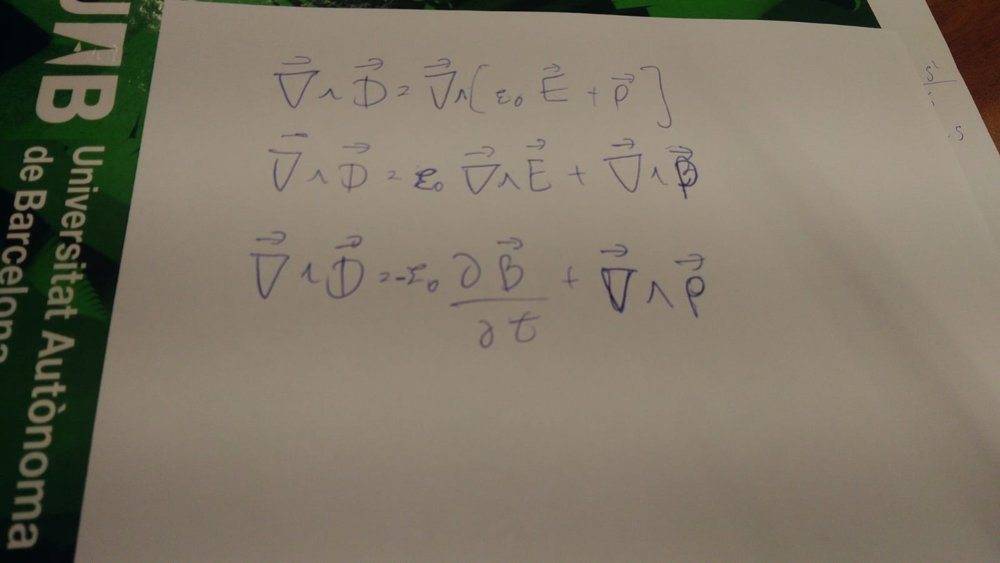 UAB
Universitat Autònoma
de Barcelona
∇⃗ ∧ D⃗ = ∇⃗ ∧ [ε₀ E⃗ + P⃗]
∇⃗ ∧ D⃗ = ε₀ ∇⃗ ∧ E⃗ + ∇⃗ ∧ P⃗
∇⃗ ∧ D⃗ = -ε₀ ∂B⃗/∂t + ∇⃗ ∧ P⃗